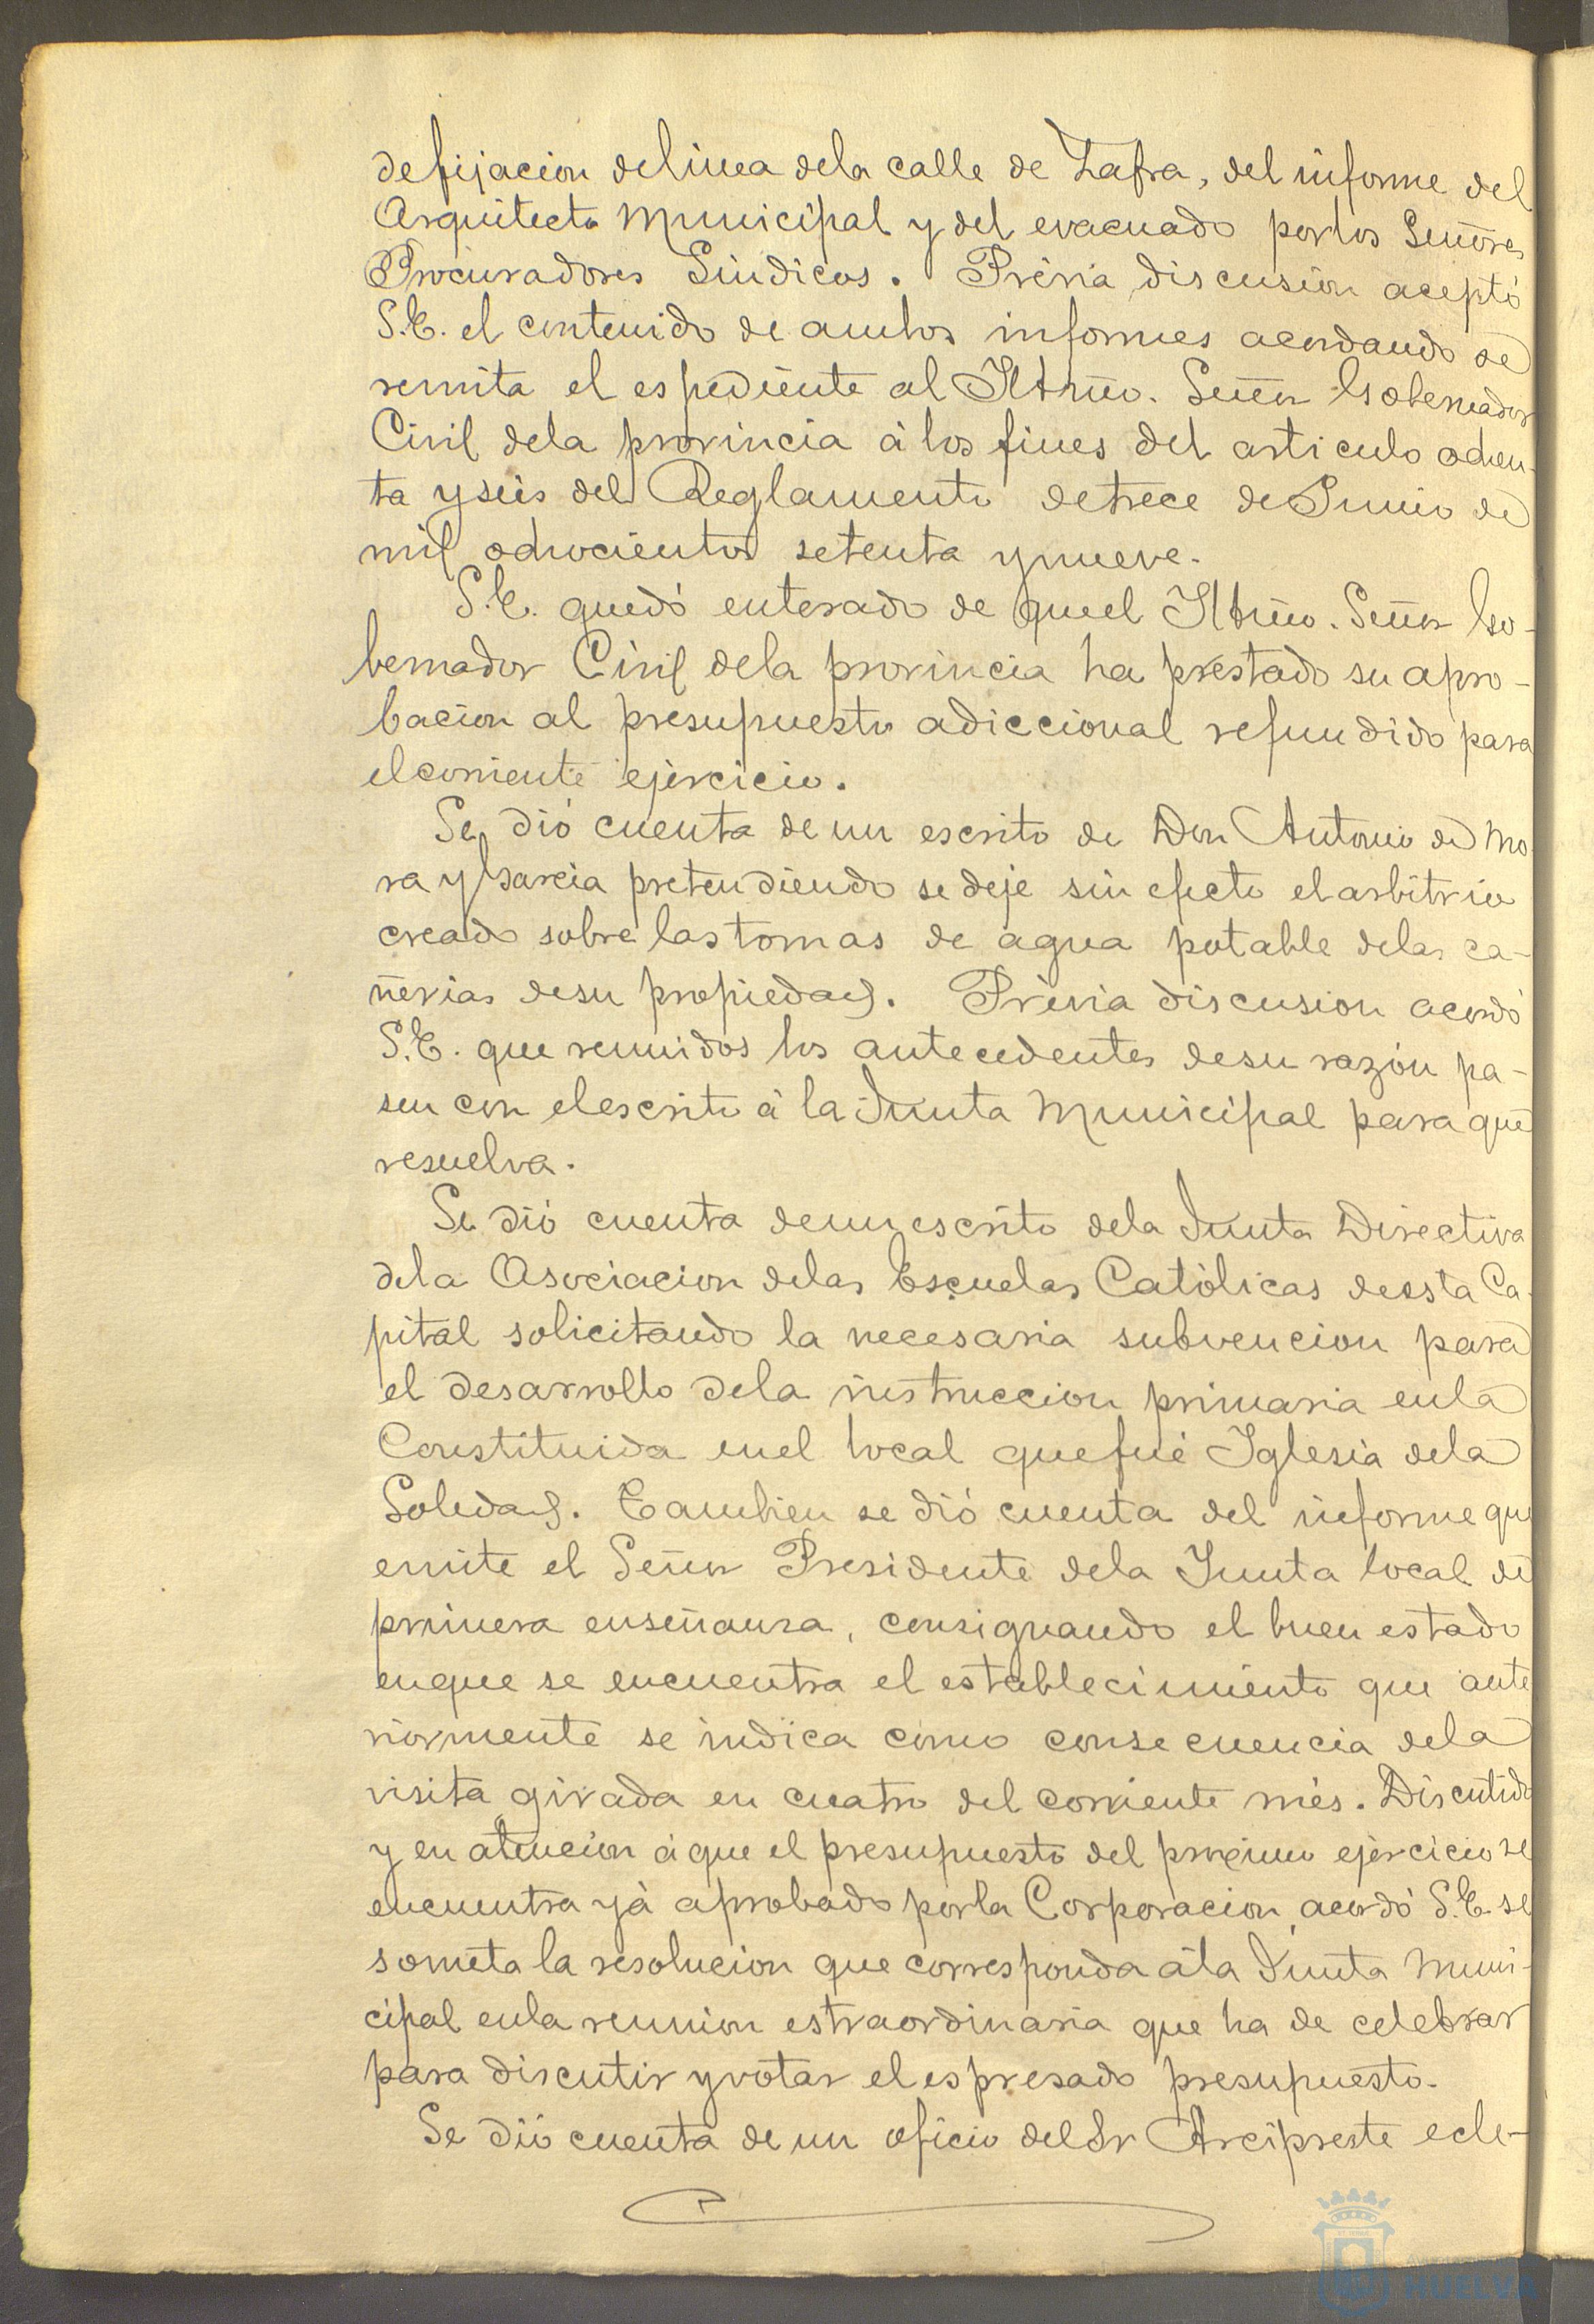 de fijacion de linea dela calle de Zafra, del informe del
Arquitecto Municipal y del evacuado por los Señores
Procuradores Sindicos. Prévia discusion aceptó
S.E. el contenido de ambos informes acordando se
remita el espediente al Iltmo. Señor Gobernador
Civil dela provincia á los fines del articulo ochen-
ta y seis del Reglamento de trece de Junio de
mil ochocientos setenta y nueve.
S.E. quedó enterado de que el Iltmo. Señor Go-
bernador Civil dela provincia ha prestado su apro-
bacion al presupuesto adiccional refundido para
el corriente ejercicio.
Se dió cuenta de un escrito de Don Antonio de Mo
ra y Garcia pretendiendo se deje sin efecto el arbitrio
creado sobre las tomas de agua potable delas ca-
ñerias de su propiedad. Prévia discusion acordó
S.E. que reunidos los antecedentes de su razón pa-
sen con el escrito á la Junta Municipal para que
resuelva.
Se dió cuenta de un escrito dela Junta Directiva
dela Asociacion delas Escuelas Católicas de esta Ca-
pital solicitando la necesaria subvencion para
el desarrollo dela instruccion primaria en la
Constituida en el local que fué Iglesia dela
Soledad. Tambien se dió cuenta del informe que
emite el Señor Presidente dela Junta local de
primera enseñanza, consignando el buen estado
en que se encuentra el establecimiento que ante
riormente se indica como consecuencia dela
visita girada en cuatro del corriente més. Discutido
y en atencion á que el presupuesto del proximo ejercicio se
encuentra yá aprobado por la Corporacion, acordó S.E. se
someta la resolucion que corresponda á la Junta Muni-
cipal en la reunion estraordinaria que ha de celebrar
para discutir y votar el espresado presupuesto.
Se dió cuenta de un oficio del Sr Arcipreste ecle-
HUELVA